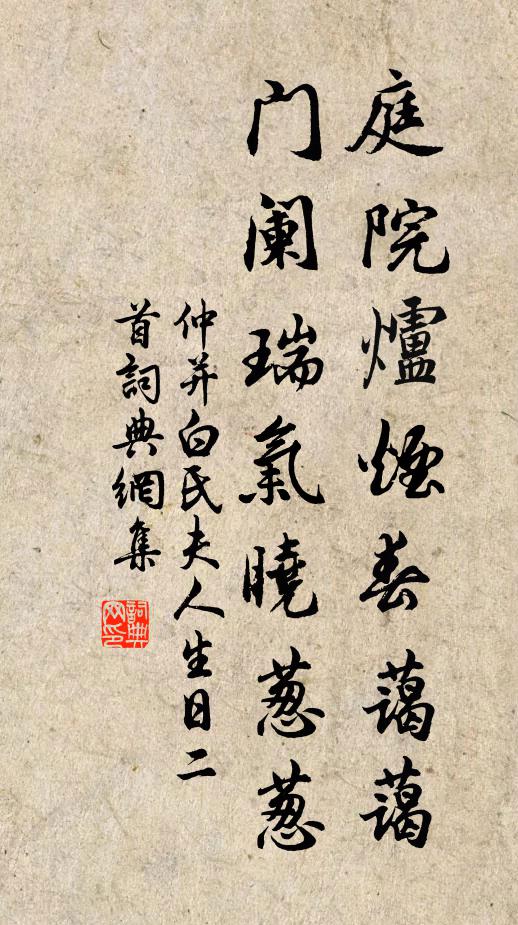 庭院爐煙春藹藹
门阑瑞氣曉葱葱
仲并白氏夫人生日二
首詞典網集
詞典网印